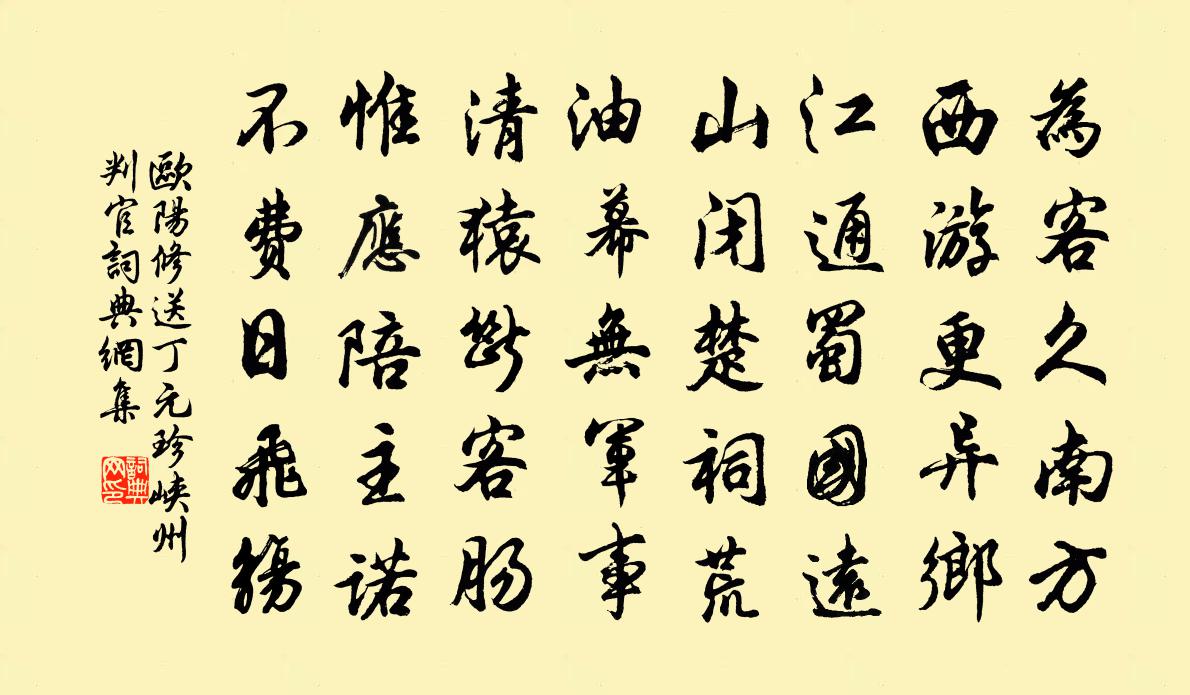 為客久南方
西游更异鄉
江通蜀國遠
山闭楚祠荒
油幕無軍事
清猿斷客肠
惟應陪主诺
不費日飛觴
歐陽修送丁元珍峽州
判官詞典網集
詞典